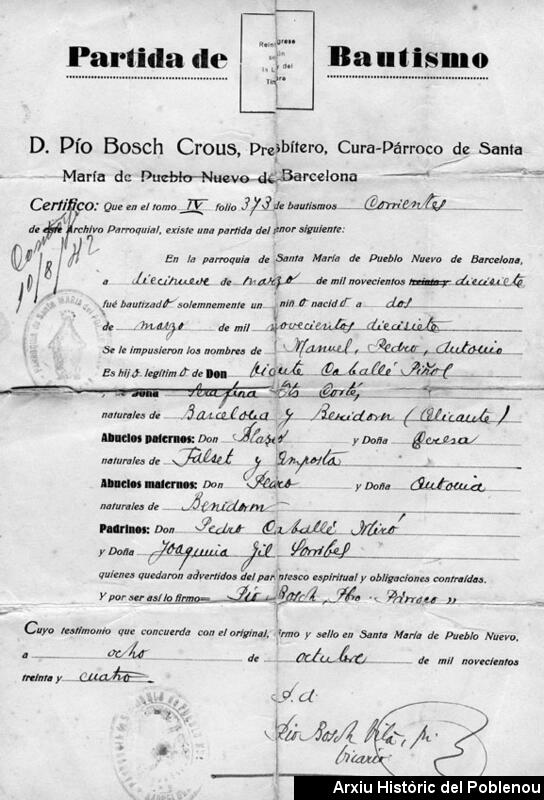 Partida de Bautismo
D. Pío Bosch Crous, Presbítero, Cura-Párroco de Santa
María de Pueblo Nuevo de Barcelona
Certifico: Que en el tomo IV folio 373 de bautismos Corrientes
de este Archivo Parroquial, existe una partida del tenor siguiente:
10/8/42
En la parroquia de Santa María de Pueblo Nuevo de Barcelona,
a diecinueve de marzo de mil novecientos treinta y diecisiete
fué bautizado solemnemente un niño nacido a dos
de marzo de mil novecientos diecisiete
Se le impusieron los nombres de Manuel, Pedro, Antonio
Es hijo legítimo de Don Vicente Caballé Piñol
y de Doña Serafina Cortés
naturales de Barcelona y Benidorm (Alicante)
Abuelos paternos: Don Blas y Doña Teresa
naturales de Falset y Amposta
Abuelos maternos: Don Pedro y Doña Antonia
naturales de Benidorm
Padrinos: Don Pedro Caballé Miró
y Doña Joaquina Gil
quienes quedaron advertidos del parentesco espiritual y obligaciones contraídas.
Y por ser así lo firmo= Pío Bosch, Pbro. Párroco "
Cuyo testimonio que concuerda con el original, firmo y sello en Santa María de Pueblo Nuevo,
a ocho de octubre de mil novecientos
treinta y cuatro.
Pío Bosch Vilá,
Vicario
Arxiu Històric del Poblenou